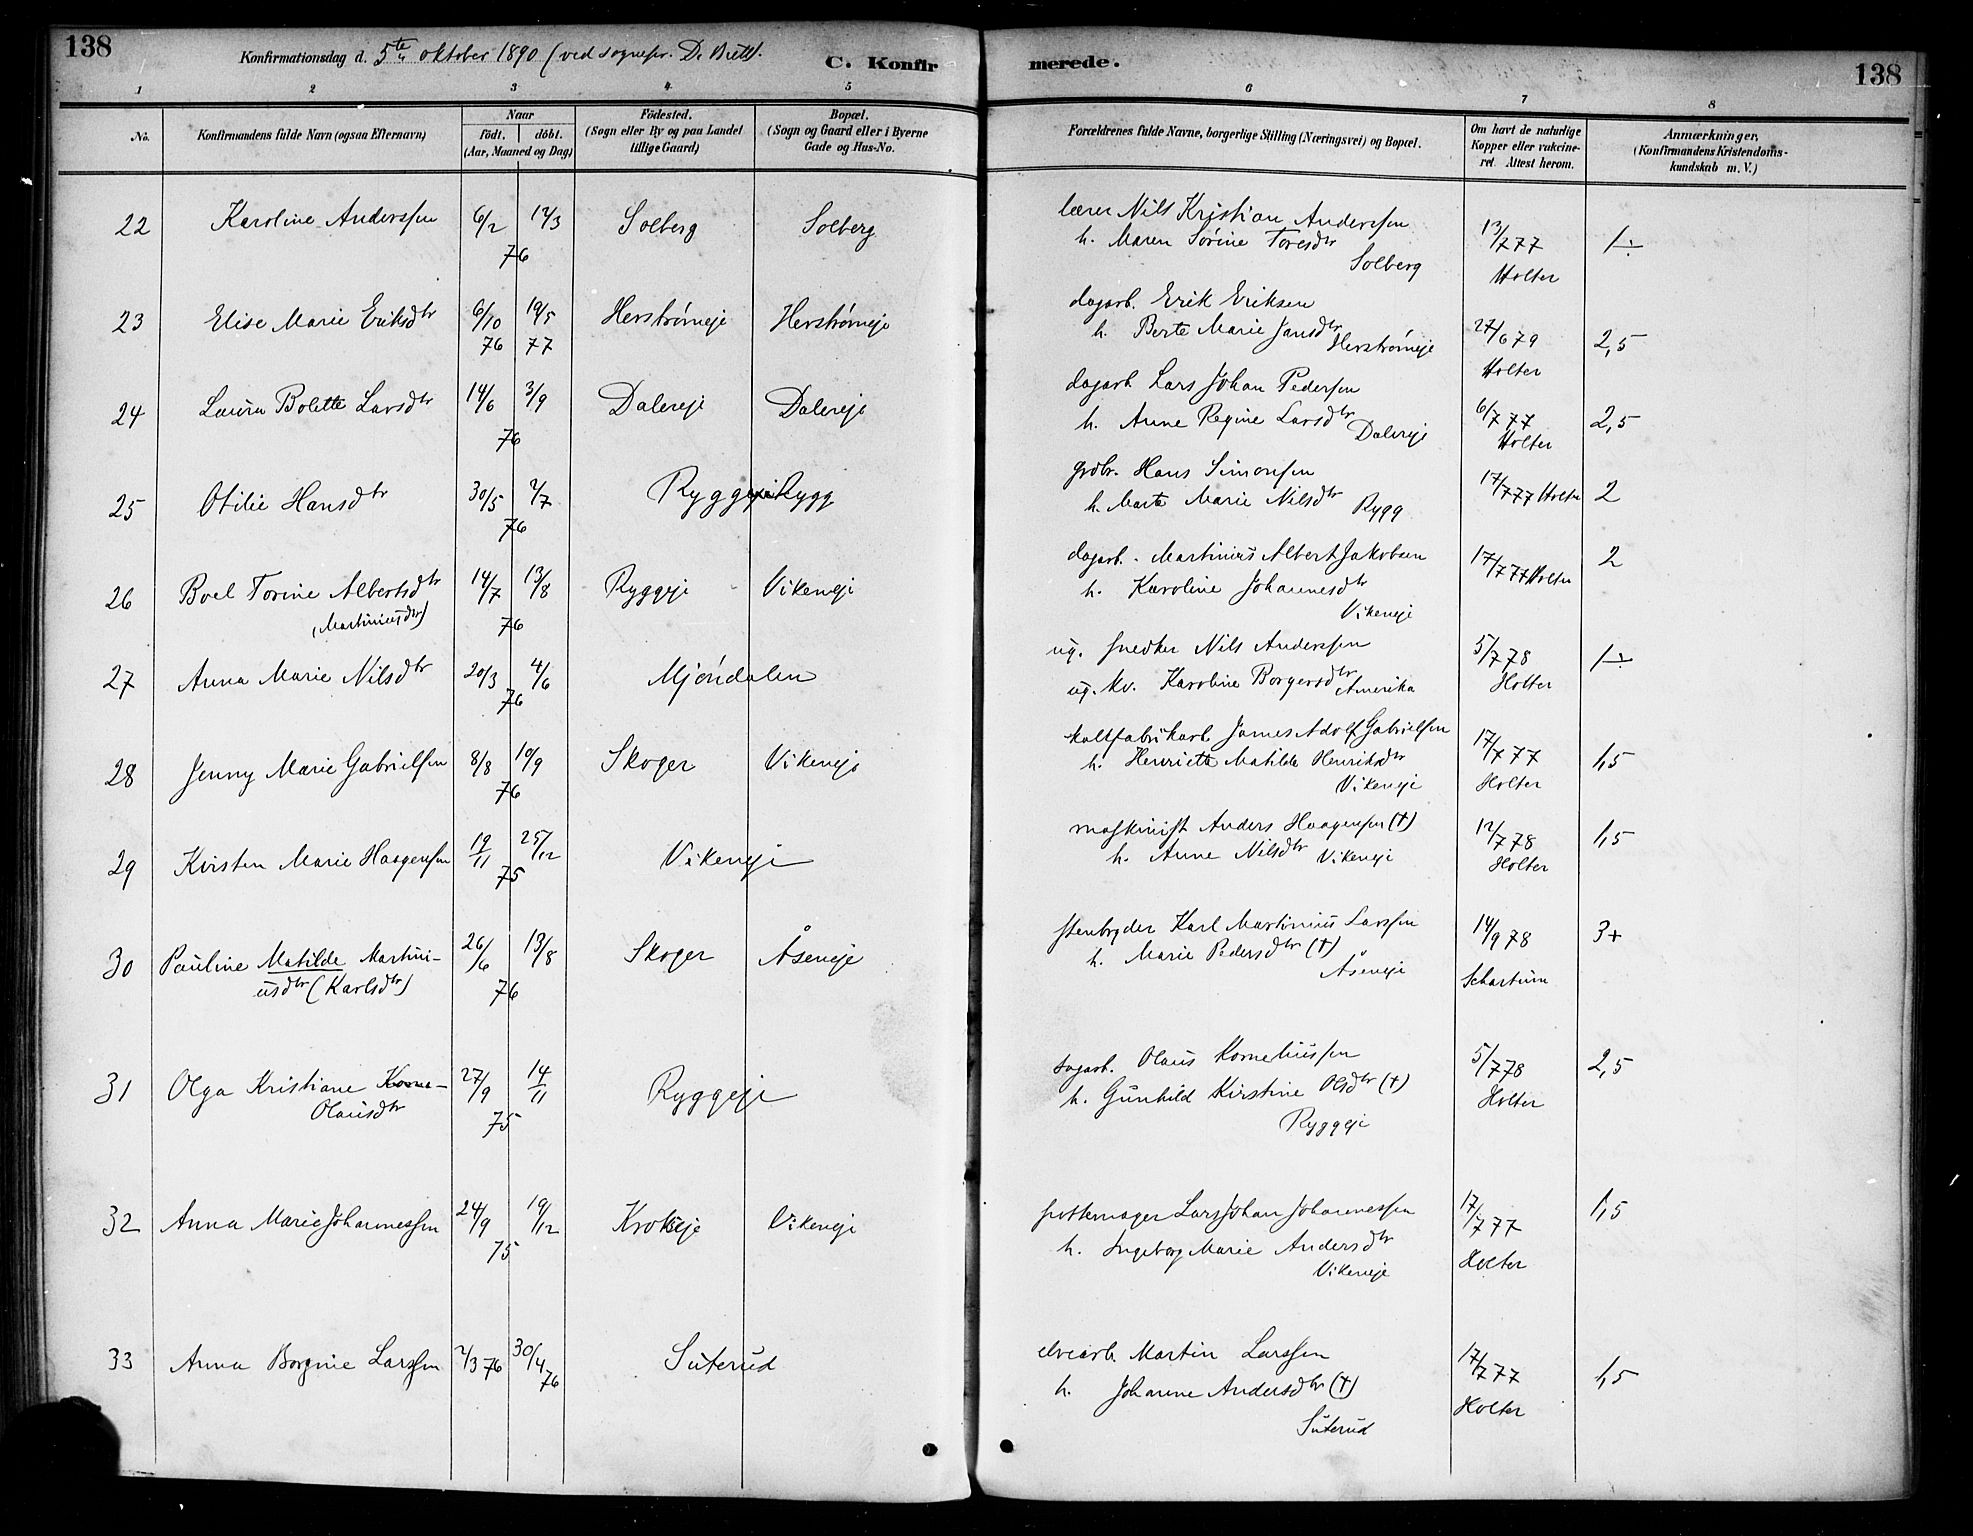 138
Konfirmationsdag d. 5te oktober 1890 (ved sognepr. D.
C. Konfirmerede.
138
1 2 3 4 5 6 7 8
No.
Konfirmandens fulde Navn (ogsaa Efternavn)
Naar
født. døbt.
(Aar, Maaned og Dag)
Fødested.
(Sogn eller By og paa Landet
tillige Gaard)
Bopæl.
(Sogn og Gaard eller i Byerne
Gade og Hus-No.
Forældrenes fulde Navne, borgerlige Stilling (Næringsvei) og Bopæl.
Om havt de naturlige
Kopper eller vakcine-
ret. Attest herom.
Anmærkninger.
(Konfirmandens Kristendoms-
kundskab m. V.)
22 Karoline Anderssen 6/2 12/3 Solberg Solberg
76
lærer Nils Kristian Anderssen
h. Maren Sørine Toresdtr
Solberg
13/7 77
Holter
1÷
23 Elise Marie Eriksdtr 6/10 19/5 Herstrømeje Herstrømeje
76 77
dagarb. Erik Eriksen
h. Berte Marie Jansdtr
Herstrømeje
27/6 79
Holter
2,5
24 Laura Bolette Larsdtr 14/6 3/9 Dalereje Dalereje
76
dagarb Lars Johan Pedersen
h. Anne Regine Larsdtr
Dalereje
6/7 77
Holter
2,5
25 Otilie Hansdtr 30/5 2/7 Ryggeje Rygg
76
grdbr. Hans Simonsen
h. Marte Marie Nilsdtr
Rygg
17/7 77 Holter
2
26 Boel Torine Albertsdtr 14/7 13/8 Ryggeje Vikeneje
(Martiniusdtr)
76
dagarb. Martinius Albert Jakobsen
h. Karoline Johannesdtr
Vikeneje
17/7 77 Holter
2
27 Anna Marie Nilsdtr 20/3 4/6 Mjøndalen
76
ug. snedker Nils Anderssen
ug. kv. Karoline Borgersdtr
Amerika
5/7 78
Holter
1÷
28 Jenny Marie Gabrielsen 8/8 10/9 Skoger Vikeneje
76
James Adolf Gabrielsen
h. Henriette Matilde Henriksdtr
Vikeneje
17/7 77
Holter
1,5
29 Kristen Marie Haagensen 19/11 25/12 Vikeneje
75
maskinist Anders Haagensen (†)
h. Anne Nilsdtr Vikeneje
12/7 78
Holter
1,5
30 Pauline Matilde Martini-
usdtr (Karlsdtr)
26/6 13/8 Skoger Åseneje
76
stenbryder Karl Martinius Larssen
h. Marie Pedersdtr (†)
Åseneje
14/9 78
Schartum
3+
31 Olga Kristiane Korne-
Olausdtr
27/9 14/11 Ryggeje
75
sagarb. Olaus Korneliussen
h. Gunhild Kirstine Olsdtr (†)
Ryggeje
5/7 78
Holter
2,5
32 Anna Marie Johannessen 24/9 19/12 Krokeje Vikeneje
75
pottemager Lars Johan Johannessen
h. Ingeborg Marie Andersdtr
Vikeneje
17/7 77
Holter
1,5
33 Anna Borgine Larssen 2/3 76 30/4 76 Suterud
elvearb. Martin Larssen
h. Johanne Andersdtr (†)
Suterud
17/7 77
Holter
1,5